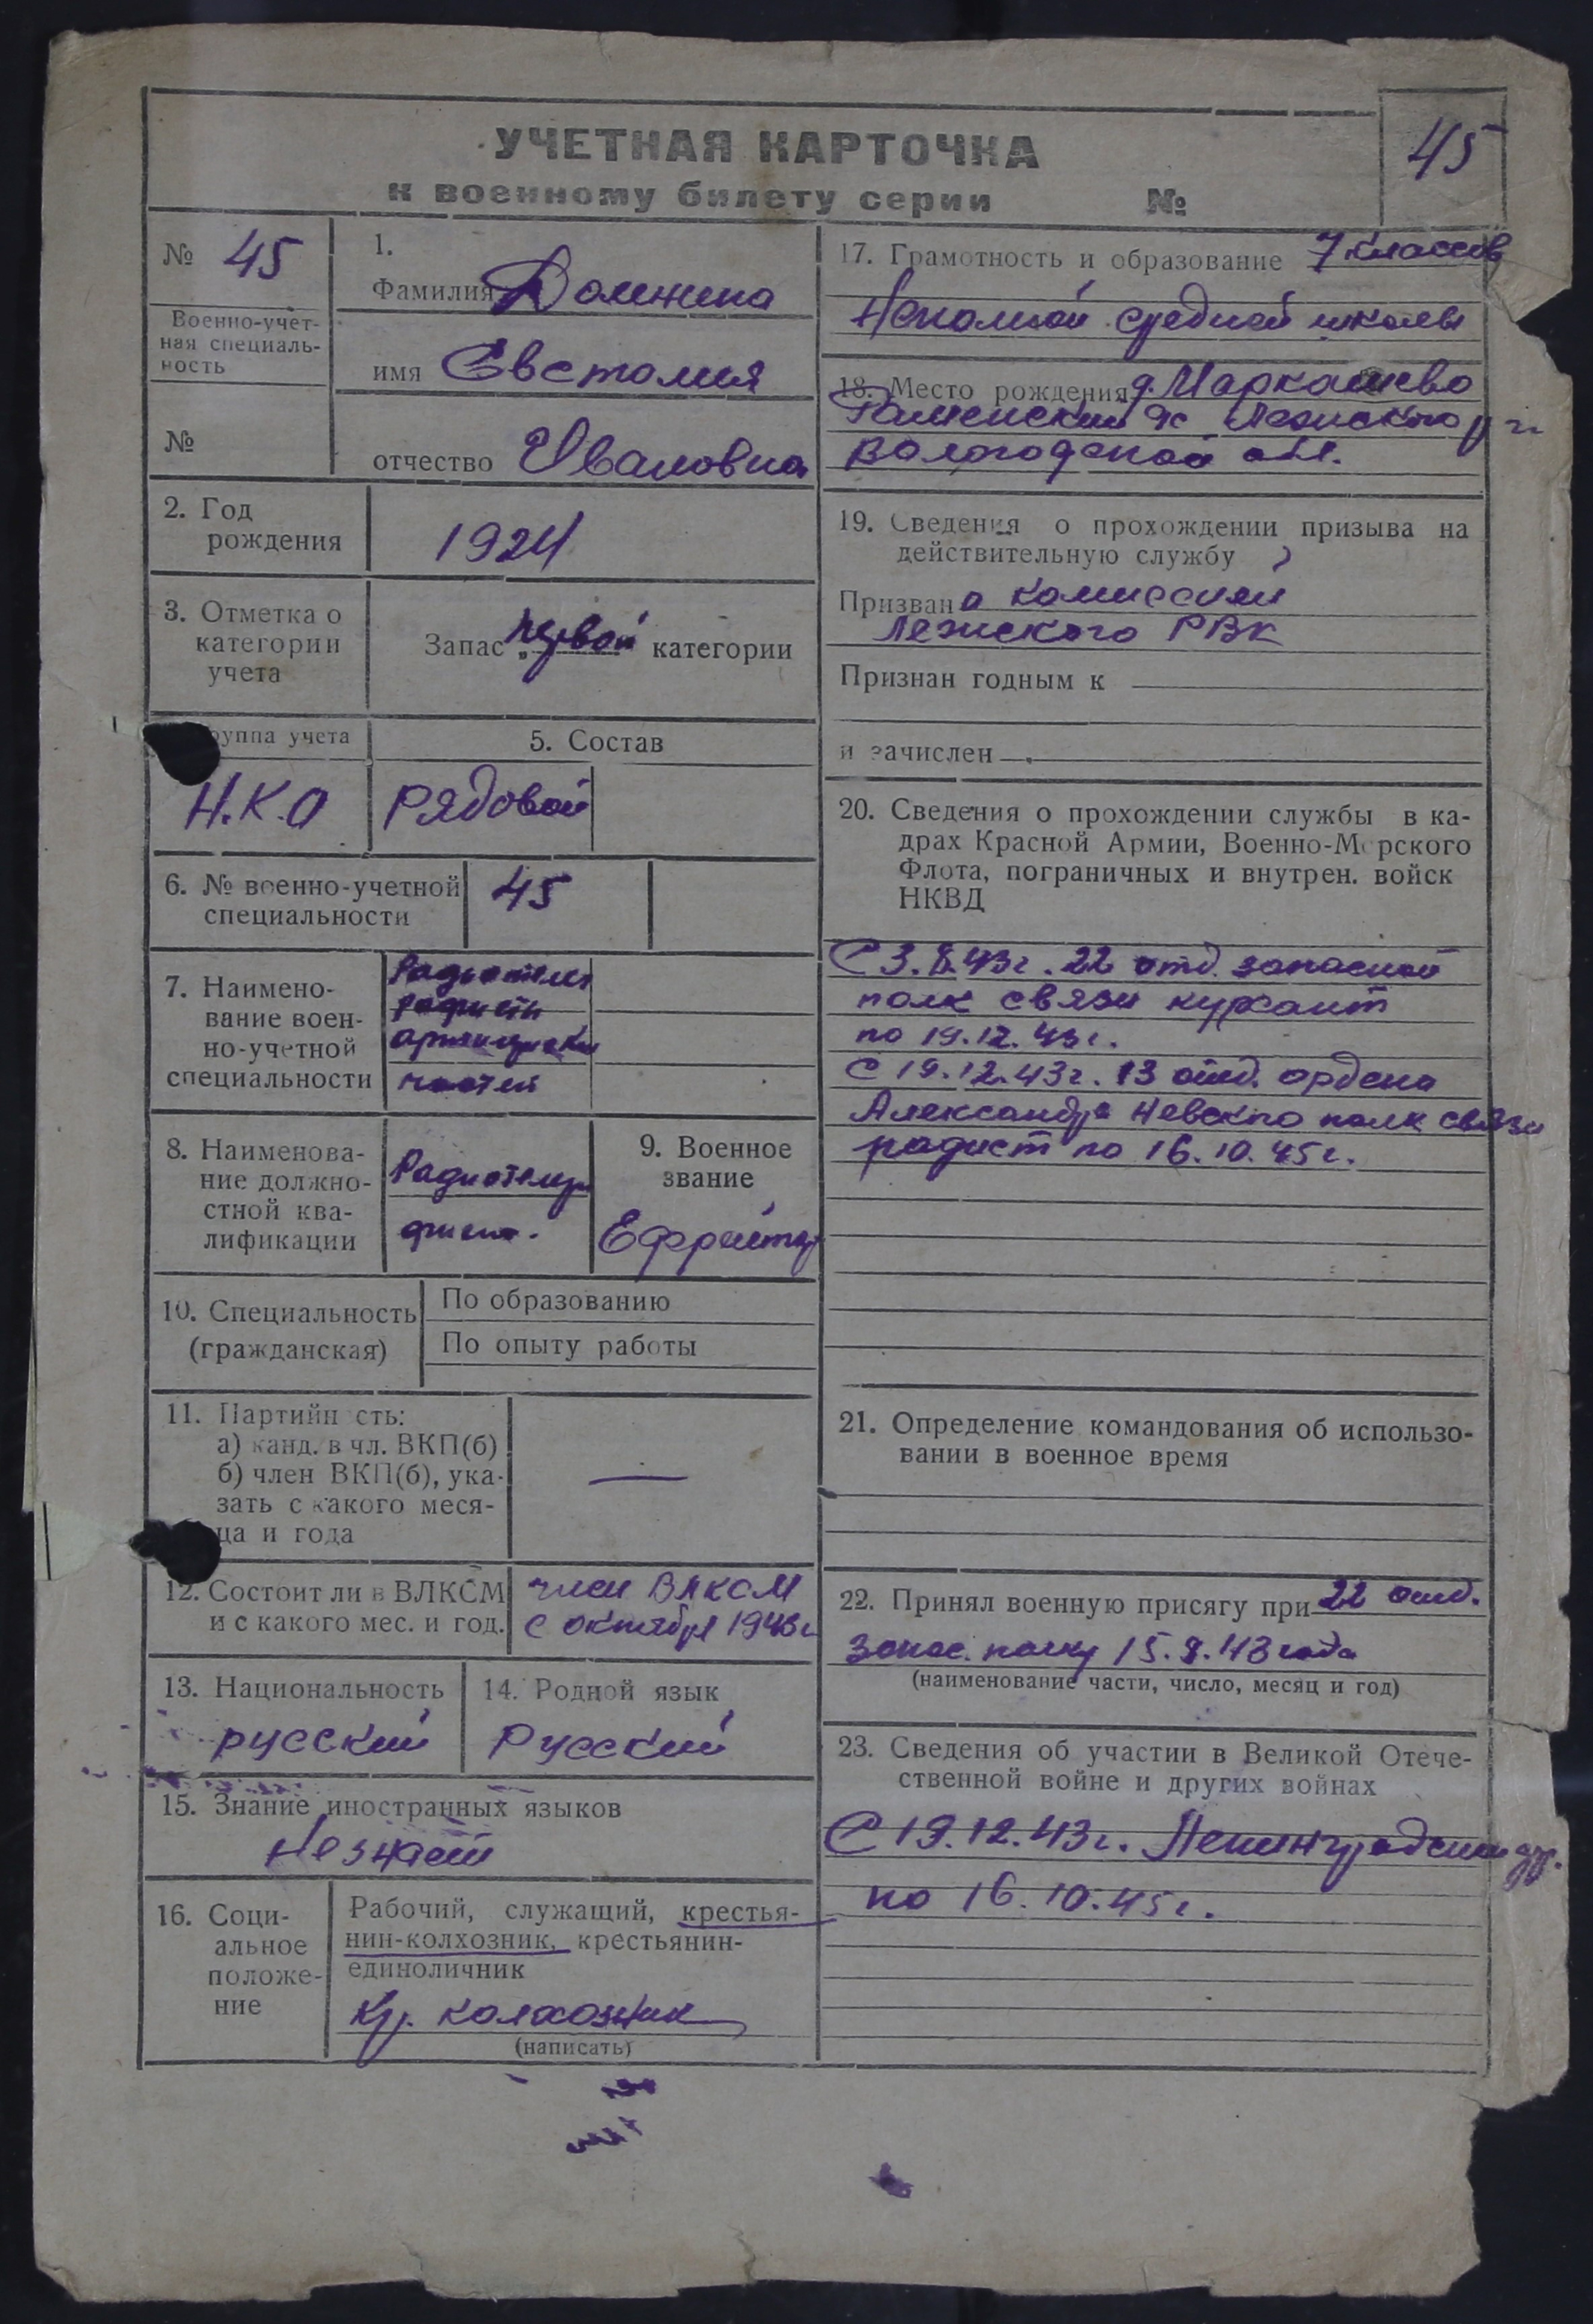 УЧЕТНАЯ КАРТОЧКА
к военному билету серии №
45
№ 45
Военно-учет-
ная специаль-
ность
№
1.
Фамилия Должина
имя Евстолия
отчество Ивановна
2. Год
рождения
1924
3. Отметка о
категории
учета
Запас „первой категории
руппа учета
Н.К.О
5. Состав
Рядовой
6. № военно-учетной
специальности
45
7. Наимено-
вание воен-
но-учетной
специальности
Радиотеле
графисты
армейских
частей
8. Наименова-
ние должно-
стной ква-
лификации
Радиотелегра
фист.
9. Военное
звание
Ефрейтор
10. Специальность
(гражданская)
По образованию
По опыту работы
11. Партийн сть:
а) канд. в чл. ВКП(б)
б) член ВКП(б), ука-
зать с какого меся-
ца и года
—
12. Состоит ли в ВЛКСМ
и с какого мес. и год.
член ВЛКСМ
с октября 1943г
13. Национальность
русский
14. Родной язык
Русский
15. Знание иностранных языков
Не знает
16. Соци-
альное
положе-
ние
Рабочий, служащий, крестья-
нин-колхозник, крестьянин-
единоличник
Кр. колхозник
(написать)
17. Грамотность и образование 7 классов
Неполной средней школы
18. Место рождения д. Маркашево
Раменский с/с Лежского р-н
Вологодской обл.
19. Сведения о прохождении призыва на
действительную службу
Призвана комиссией
Лежского РВК
Признан годным к —
и зачислен —
20. Сведения о прохождении службы в ка-
драх Красной Армии, Военно-Морского
Флота, пограничных и внутрен. войск
НКВД
С 3.8.43г. 22 отд. запасной
полк связи курсант
по 19.12.43г.
С 19.12.43г. 13 отд. ордена
Александра Невского полк связи
радист по 16.10.45г.
21. Определение командования об использо-
вании в военное время
22. Принял военную присягу при 22 отд.
запас. полку 15.8.43 года
(наименование части, число, месяц и год)
23. Сведения об участии в Великой Отече-
ственной войне и других войнах
С 19.12.43г. Ленинградский фр.
по 16.10.45г.